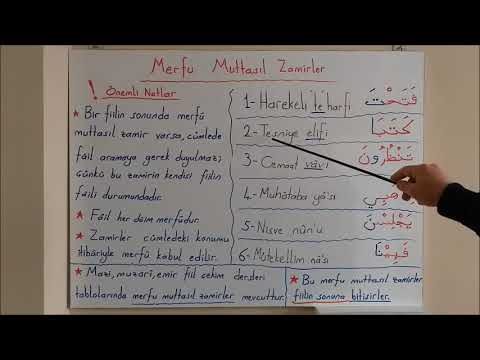 Merfu Muttasıl Zamirler
! Önemli Notlar
★ Bir fiilin sonunda merfû
muttasıl zamir varsa, cümlede
fâil aramaya gerek duyulmaz;
çünkü bu zamirin kendisi fiilin
fâili durumundadır.
★ Fâil her daim merfûdur.
★ Zamirler cümledeki konumu
itibâriyle merfû kabul edilir.
1- Harekeli te harfi فَتَحْتَ
2- Tesniye elifi كَتَبَا
3- Cemaat vâvı تَنْظُرُونَ
4- Muhâtaba yâ'sı
5- Nisve nûn'u يَجْلِسْنَ
6- Mütekellim nâ'sı فَهِمْنَا
★ Mazi, muzari, emir fiil sekim dersleri
tablolarında merfu muttasıl zamirler mevcuttur.
★ Bu merfu muttasıl zamirler
fiilin sonuna bitişirler.